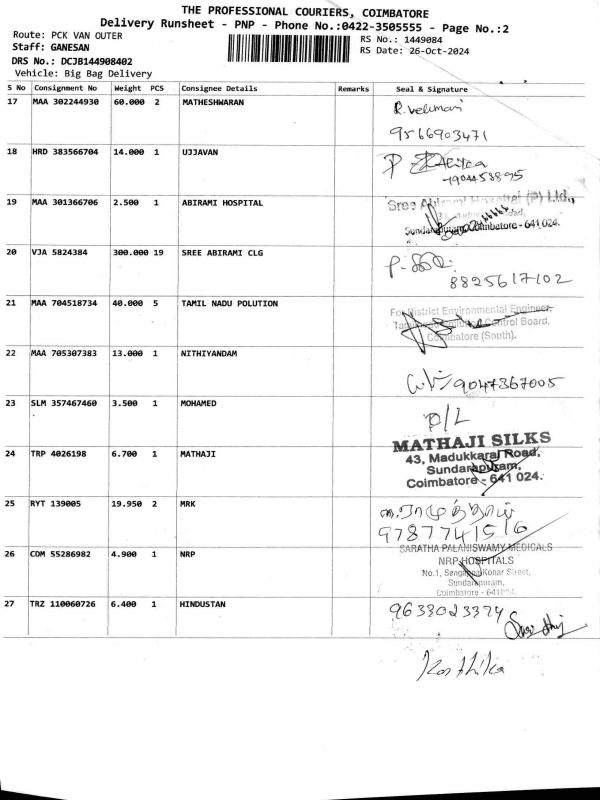 THE PROFESSIONAL COURIERS, COIMBATORE
Delivery Runsheet - PNP - Phone No.:0422-3505555 - Page No.:2
Route: PCK VAN OUTER
RS No.: 1449084
Staff: GANESAN
RS Date: 26-Oct-2024
DRS No.: DCJB144908402
Vehicle: Big Bag Delivery
S No Consignment No Weight PCS Consignee Details Remarks Seal & Signature
17 MAA 302244930 60.000 2 MATHESHWARAN
9566903471
18 HRD 383566704 14.000 1 UJJAVAN
19 MAA 301366706 2.500 1 ABIRAMI HOSPITAL
Sree Abirami Hospital (P) Ltd.,
Sundarapuram, Coimbatore - 641 024.
20 VJA 5824384 300.000 19 SREE ABIRAMI CLG
8825617102
21 MAA 704518734 40.000 5 TAMIL NADU POLUTION
For District Environmental Engineer,
Control Board,
Coimbatore (South).
22 MAA 705307383 13.000 1 NITHIYANDAM
9047367005
23 SLM 357467460 3.500 1 MOHAMED
P/L
24 TRP 4026198 6.700 1 MATHAJI
MATHAJI SILKS
43, Madukkarai Road,
Sundarapuram,
Coimbatore - 641 024.
25 RYT 139005 19.950 2 MRK
9787741516
26 CDM 55286982 4.900 1 NRP
SARATHA PALANISWAMY MEDICALS
NRP HOSPITALS
No.1, Konar Street,
Sundarapuram,
Coimbatore - 641024.
27 TRZ 110060726 6.400 1 HINDUSTAN
9633023324